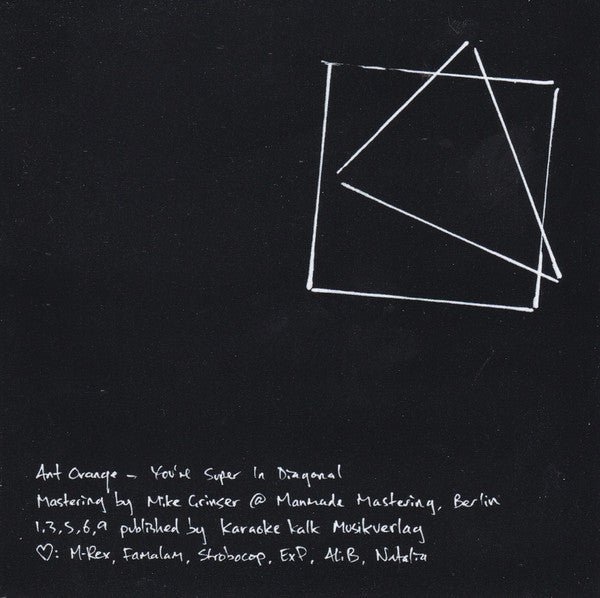 Ant Orange – You're Super In Diagonal
Mastering by Mike Grinser @ Manmade Mastering, Berlin
1,3,5,6,9 published by Karaoke Kalk Musikverlag
♡: M-Rex, Famalam, Strobocop, ExP, Ali B, Natalia